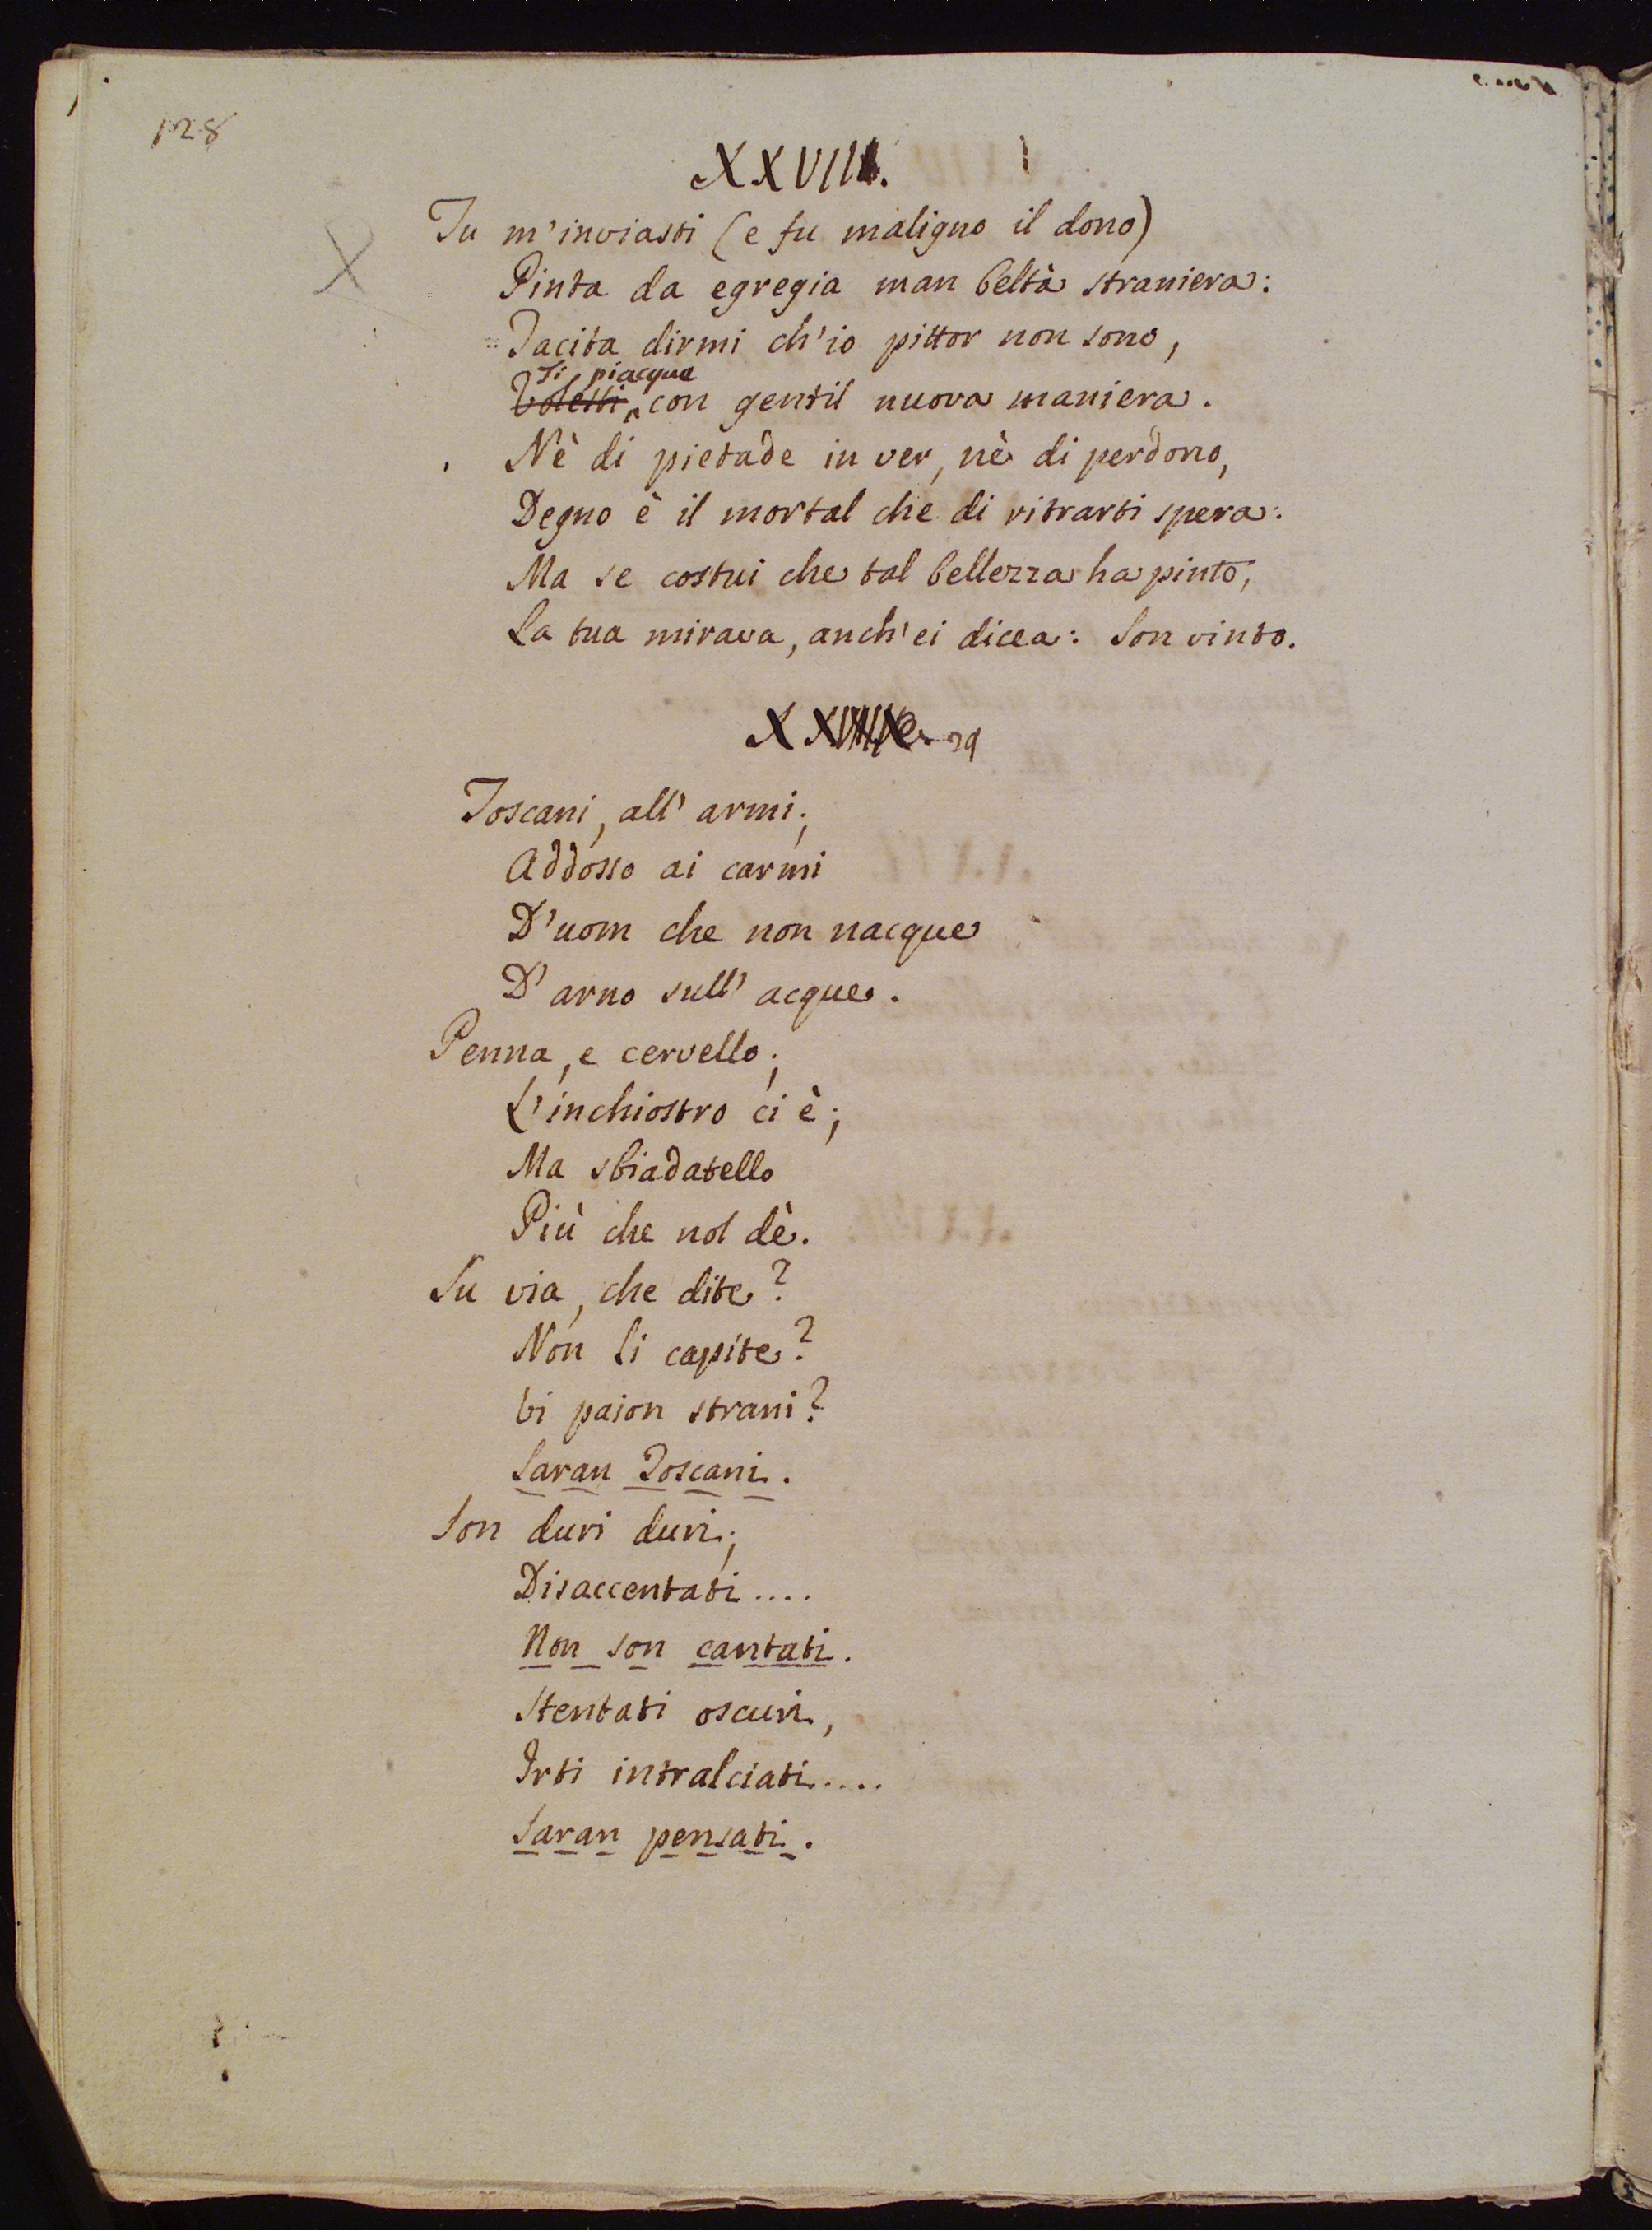 128
XXVIII.
Tu m'inviasti (e fu maligno il dono)
Pinta da egregia man beltà straniera:
Tacita dirmi ch'io pittor non sono,
Ti piacque
Volesti con gentil nuova maniera.
Nè di pietade in ver, nè di perdono,
Degno è il mortal che di ritrarti spera:
Ma se costui che tal bellezza ha pinto,
La tua mirava, anch'ei dicea: Son vinto.
29
Toscani, all' armi;
Addosso ai carmi
D'uom che non nacque
D' arno sull' acque.
Penna, e cervello;
L'inchiostro ci è;
Ma sbiadatello
Più che nol dè.
Su via, che dite?
Non li capite?
Vi paion strani?
Saran Toscani.
Son duri duri;
Disaccentati....
Non son cantati.
Stentati oscuri,
Irti intralciati.....
Saran pensati.